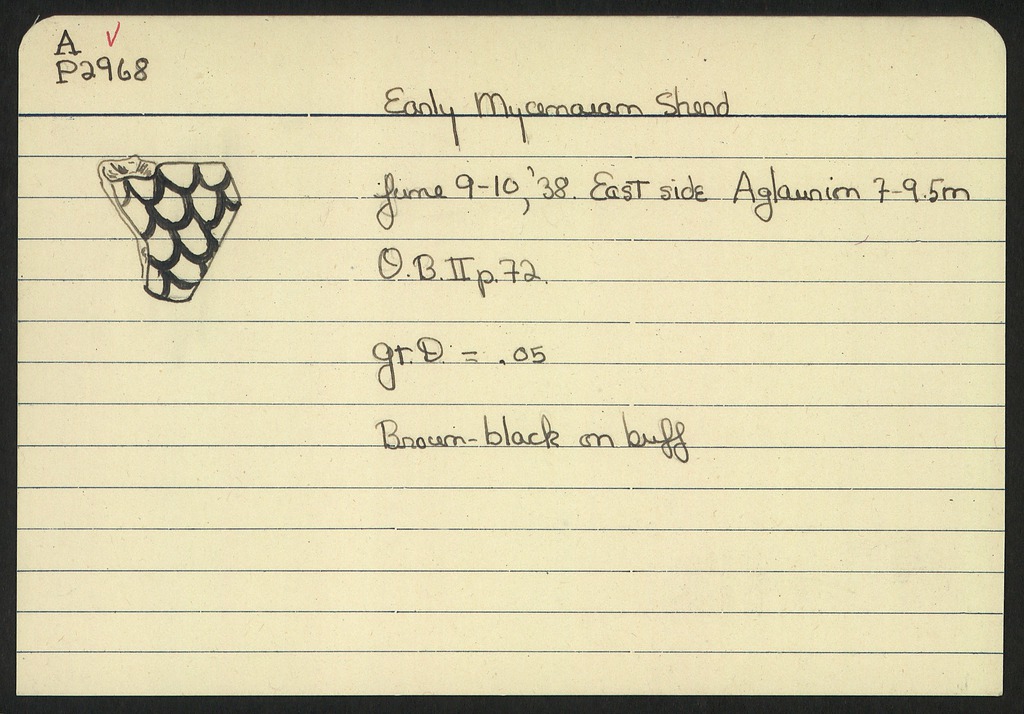 A ✓
P2968
Early Mycenaean Sherd
June 9-10, '38. East side Aglaurion 7-9.5m
O.B. II p. 72.
gr. D. = .05
Brown-black on buff